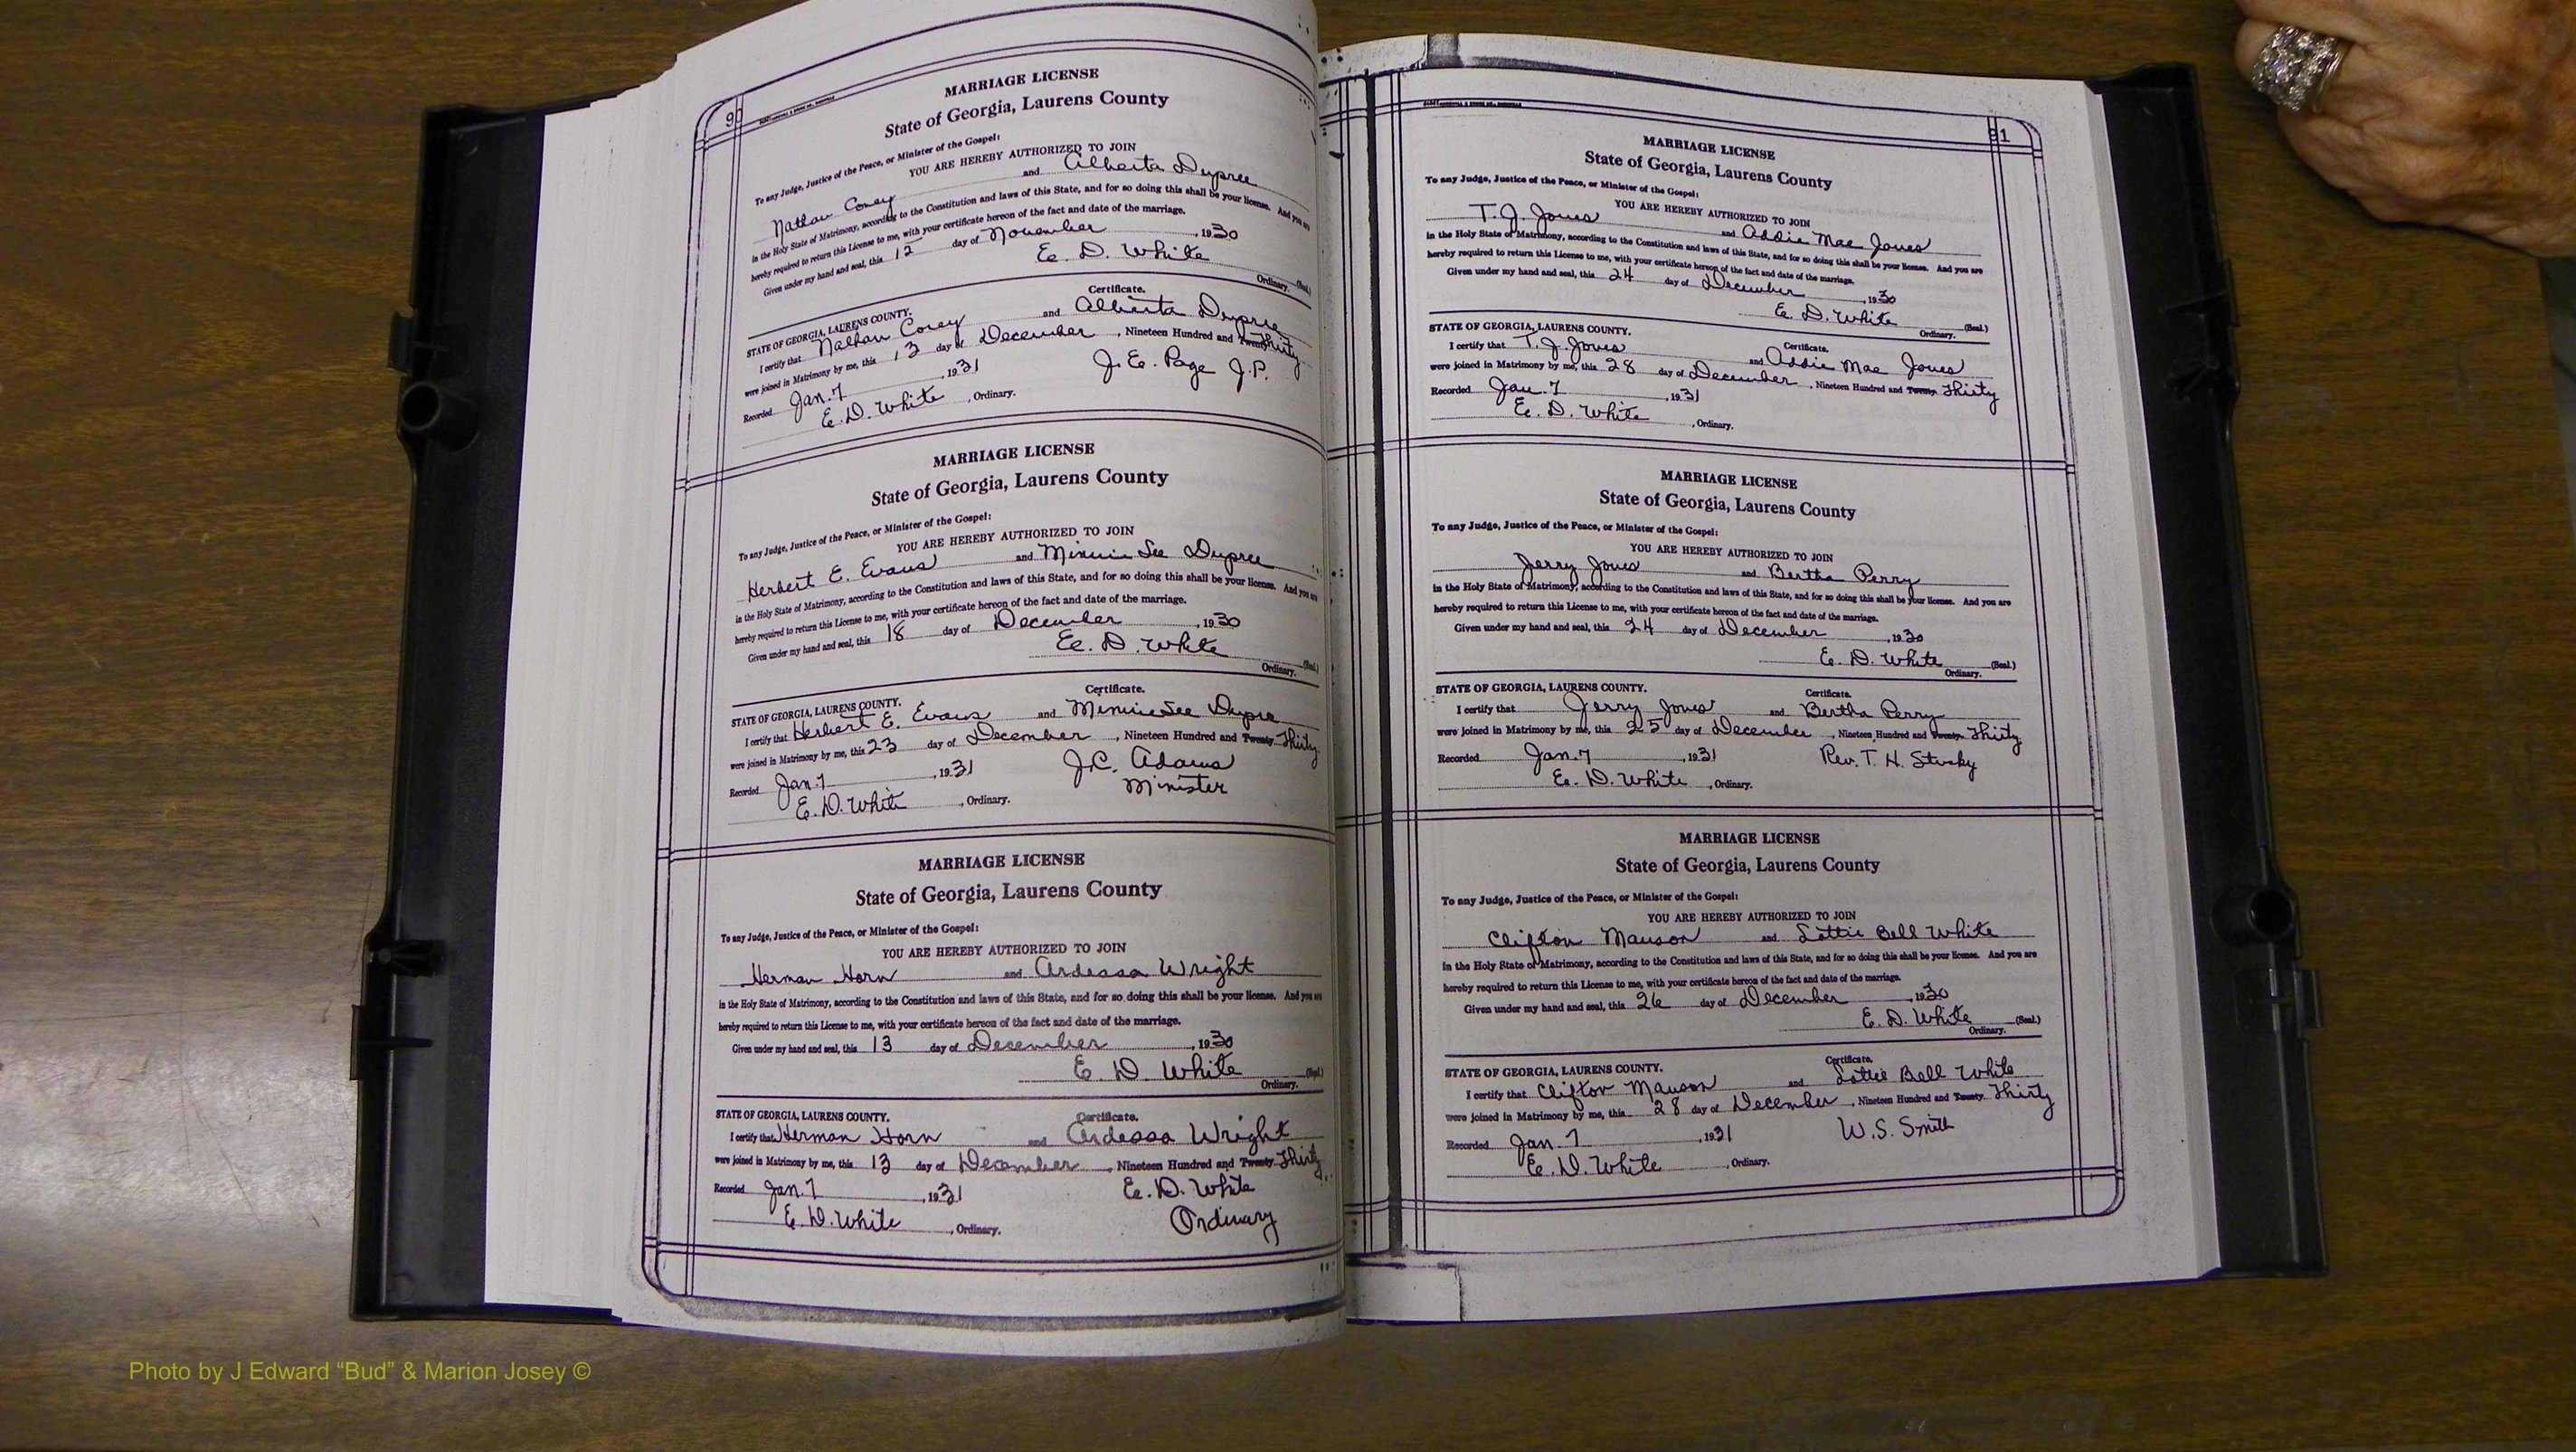 90
MARRIAGE LICENSE
State of Georgia, Laurens County
To any Judge, Justice of the Peace, or Minister of the Gospel:
YOU ARE HEREBY AUTHORIZED TO JOIN
Nathan Coney and Alberta Dupree
in the Holy State of Matrimony, according to the Constitution and laws of this State, and for so doing this shall be your license. And you are
hereby required to return this License to me, with your certificate hereon of the fact and date of the marriage.
Given under my hand and seal, this 12 day of November, 1930
E. D. White
Ordinary. (Seal.)
Certificate.
STATE OF GEORGIA, LAURENS COUNTY.
I certify that Nathan Coney and Alberta Dupree
were joined in Matrimony by me, this 13 day of December, Nineteen Hundred and Twenty Thirty
Recorded Jan. 7, 1931 J. E. Page J.P.
E. D. White, Ordinary.
MARRIAGE LICENSE
State of Georgia, Laurens County
To any Judge, Justice of the Peace, or Minister of the Gospel:
YOU ARE HEREBY AUTHORIZED TO JOIN
Herbert E. Evans and Minnie Lee Dupree
in the Holy State of Matrimony, according to the Constitution and laws of this State, and for so doing this shall be your license. And you are
hereby required to return this License to me, with your certificate hereon of the fact and date of the marriage.
Given under my hand and seal, this 18 day of December, 1930
E. D. White
Ordinary. (Seal.)
Certificate.
STATE OF GEORGIA, LAURENS COUNTY.
I certify that Herbert E. Evans and Minnie Lee Dupree
were joined in Matrimony by me, this 23 day of December, Nineteen Hundred and Twenty Thirty
Recorded Jan. 7, 1931 J.C. Adams
E. D. White, Ordinary. Minister
MARRIAGE LICENSE
State of Georgia, Laurens County
To any Judge, Justice of the Peace, or Minister of the Gospel:
YOU ARE HEREBY AUTHORIZED TO JOIN
Herman Horn and Ardessa Wright
in the Holy State of Matrimony, according to the Constitution and laws of this State, and for so doing this shall be your license. And you are
hereby required to return this License to me, with your certificate hereon of the fact and date of the marriage.
Given under my hand and seal, this 13 day of December, 1930
E. D. White (Seal.)
Ordinary.
STATE OF GEORGIA, LAURENS COUNTY. Certificate.
I certify that Herman Horn and Ardessa Wright
were joined in Matrimony by me, this 13 day of December, Nineteen Hundred and Twenty Thirty
Recorded Jan. 7, 1931 E. D. White
E. D. White, Ordinary. Ordinary
91
MARRIAGE LICENSE
State of Georgia, Laurens County
To any Judge, Justice of the Peace, or Minister of the Gospel:
YOU ARE HEREBY AUTHORIZED TO JOIN
T. J. Jones and Addie Mae Jones
in the Holy State of Matrimony, according to the Constitution and laws of this State, and for so doing this shall be your license. And you are
hereby required to return this License to me, with your certificate hereon of the fact and date of the marriage.
Given under my hand and seal, this 24 day of December, 1930
E. D. White (Seal.)
Ordinary.
STATE OF GEORGIA, LAURENS COUNTY. Certificate.
I certify that T. J. Jones and Addie Mae Jones
were joined in Matrimony by me, this 28 day of December, Nineteen Hundred and Twenty Thirty
Recorded Jan. 7, 1931
E. D. White, Ordinary.
MARRIAGE LICENSE
State of Georgia, Laurens County
To any Judge, Justice of the Peace, or Minister of the Gospel:
YOU ARE HEREBY AUTHORIZED TO JOIN
Jerry Jones and Bertha Perry
in the Holy State of Matrimony, according to the Constitution and laws of this State, and for so doing this shall be your license. And you are
hereby required to return this License to me, with your certificate hereon of the fact and date of the marriage.
Given under my hand and seal, this 24 day of December, 1930
E. D. White (Seal.)
Ordinary.
STATE OF GEORGIA, LAURENS COUNTY. Certificate.
I certify that Jerry Jones and Bertha Perry
were joined in Matrimony by me, this 25 day of December, Nineteen Hundred and Twenty Thirty
Recorded Jan. 7, 1931 Rev. T. H.
E. D. White, Ordinary.
MARRIAGE LICENSE
State of Georgia, Laurens County
To any Judge, Justice of the Peace, or Minister of the Gospel:
YOU ARE HEREBY AUTHORIZED TO JOIN
Clifton Manson and Lottie Bell White
in the Holy State of Matrimony, according to the Constitution and laws of this State, and for so doing this shall be your license. And you are
hereby required to return this License to me, with your certificate hereon of the fact and date of the marriage.
Given under my hand and seal, this 26 day of December, 1930
E. D. White (Seal.)
Ordinary.
STATE OF GEORGIA, LAURENS COUNTY. Certificate.
I certify that Clifton Manson and Lottie Bell White
were joined in Matrimony by me, this 28 day of December, Nineteen Hundred and Twenty Thirty
Recorded Jan. 7, 1931 W. S. Smith
E. D. White, Ordinary.
Photo by J Edward “Bud” & Marion Josey ©